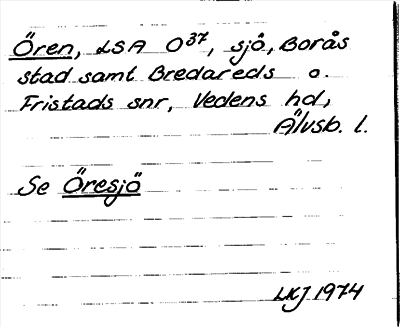 Ören, LSA O37, sjö, Borås
stad samt Bredareds o.
Fristads snr, Vedens hd,
Älvsb. l.
Se Öresjö
LKJ 1974